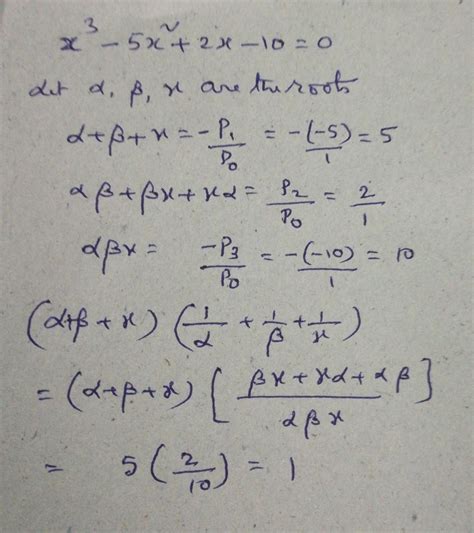 x³ - 5x² + 2x - 10 = 0
Let α, β, γ are the roots
α+β+γ = -P₁/P₀ = -(-5)/1 = 5
αβ+βγ+γα = P₂/P₀ = 2/1
αβγ = -P₃/P₀ = -(-10)/1 = 10
(α+β+γ) (1/α + 1/β + 1/γ)
= (α+β+γ) [βγ+γα+αβ / αβγ]
= 5(2/10) = 1